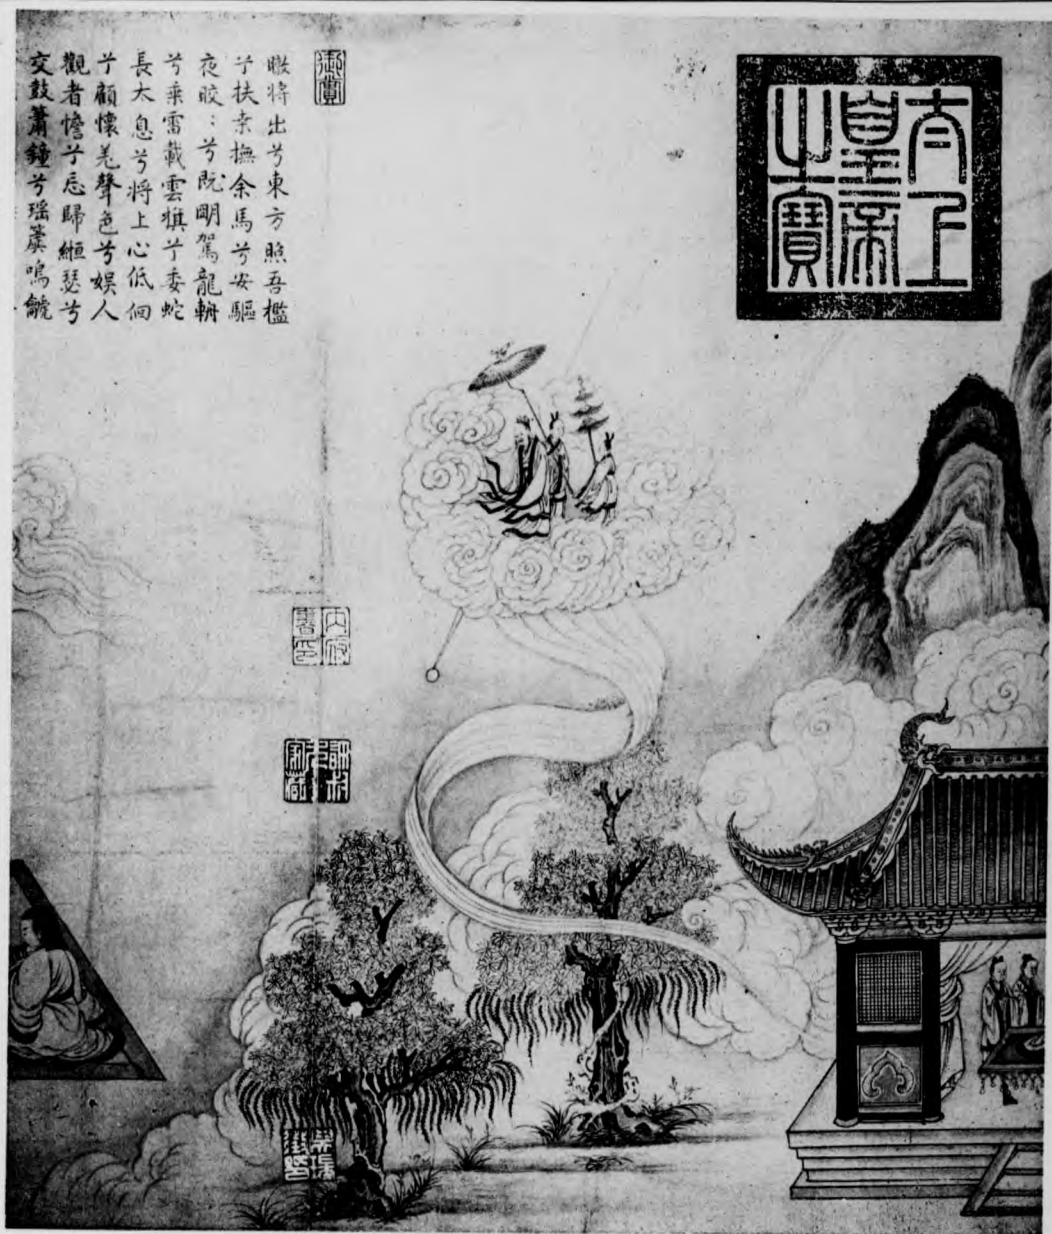 太上
皇帝
之寶
御賞
暾將出兮東方照吾檻
兮扶桒撫余馬兮安驅
夜晈：兮既明駕龍輈
兮乗雷載雲旗兮委蛇
長太息兮將上心低佪
兮顧懷羌聲色兮娛人
觀者憺兮忘歸緪瑟兮
交鼓簫鐘兮瑶簴鳴鷈
内府
書印
家藏